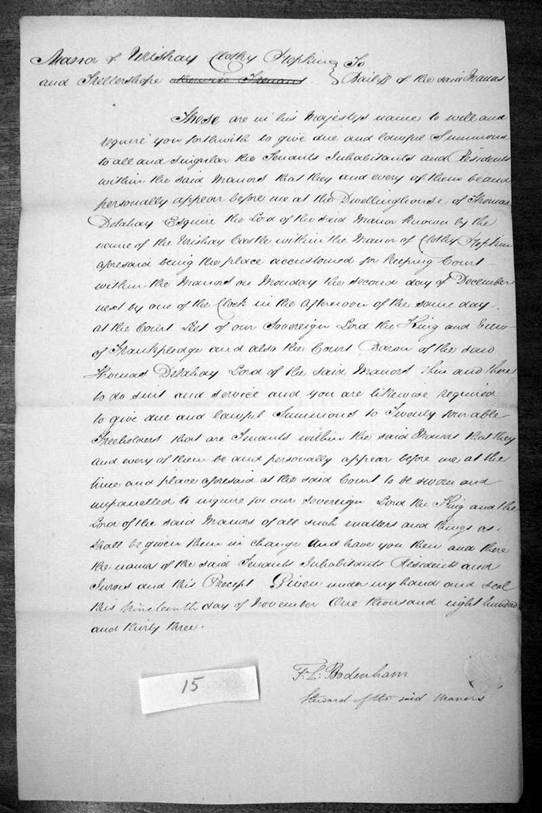 Manor of Urishay Clothy Hopkin } To
and Fullershope } Bailiff of the said Manors
These are in his Majestys name to will and
require you forthwith to give due and lawful Summons
to all and singular the Tenants Inhabitants and Residents
within the said Manors that they and every of them be and
personally appear before me at the Dwellinghouse of Thomas
Delahay Esquire the Lord of the said Manor known by the
name of the Urishay Castle within the Manor of Clothy Hopkin
aforesaid being the place accustomed for keeping Court
within the Manors on Monday the second day of December
next by one of the Clock in the afternoon of the same day
at the Court Leet of our Sovereign Lord the King and View
of Frankpledge and also the Court Baron of the said
Thomas Delahay Lord of the said Manors then and there
to do suit and service and you are likewise required
to give due and lawful Summons to Twenty four able
Freeholders that are Tenants within the said Manors that they
and every of them be and personally appear before me at the
time and place aforesaid at the said Court to be sworn and
impanelled to inquire for our Sovereign Lord the King and the
Lord of the said Manors of all such matters and things as
shall be given them in charge And have you then and there
the names of the said Tenants Inhabitants Residents and
Jurors and this Precept Given under my hand and seal
this Nineteenth day of November One thousand eight hundred
and thirty three.
F. L. Bodenham
Steward of the said Manors
15